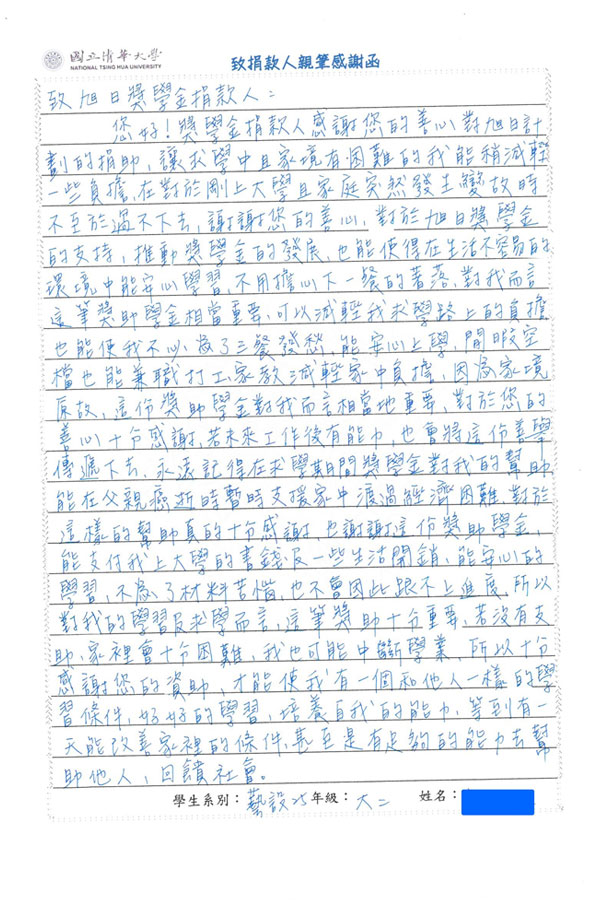 國立清華大學
NATIONAL TSING HUA UNIVERSITY
致捐款人親筆感謝函
致旭日獎學金捐款人：
您好！獎學金捐款人感謝您的善心對旭日計
劃的捐助，讓求學中且家境有困難的我能稍減輕
一些負擔，在對於剛上大學且家庭突然發生變故時
不至於過不下去，謝謝您的善心，對於旭日獎學金
的支持，推動獎學金的發展，也能使得在生活不容易的
環境中能安心學習，不用擔心下一餐的著落，對我而言
這筆獎助學金相當重要，可以減輕我求學路上的負擔
也能使我不必為了三餐發愁，能安心上學，閒暇空
檔也能兼職打工、家教減輕家中負擔，因為家境
原故，這份獎助學金對我而言相當地重要，對於您的
善心十分感謝，若未來工作後有能力，也會將這份善舉
傳遞下去，永遠記得在求學期間獎學金對我的幫助
能在父親癌逝時暫時支援家中渡過經濟困難，對於
這樣的幫助真的十分感謝，也謝謝這份獎助學金，
能支付我上大學的書錢及一些生活開銷，能安心的
學習，不為了材料苦惱，也不會因此跟不上進度，所以
對我的學習及求學而言，這筆獎助十分重要，若沒有支
助，家裡會十分困難，我也可能中斷學業，所以十分
感謝您的資助，才能使我有一個和他人一樣的學
習條件，好好的學習，培養自我的能力，等到有一
天能改善家裡的條件，甚至是有足夠的能力去幫
助他人，回饋社會。
學生系別：藝設25年級：大二 姓名：